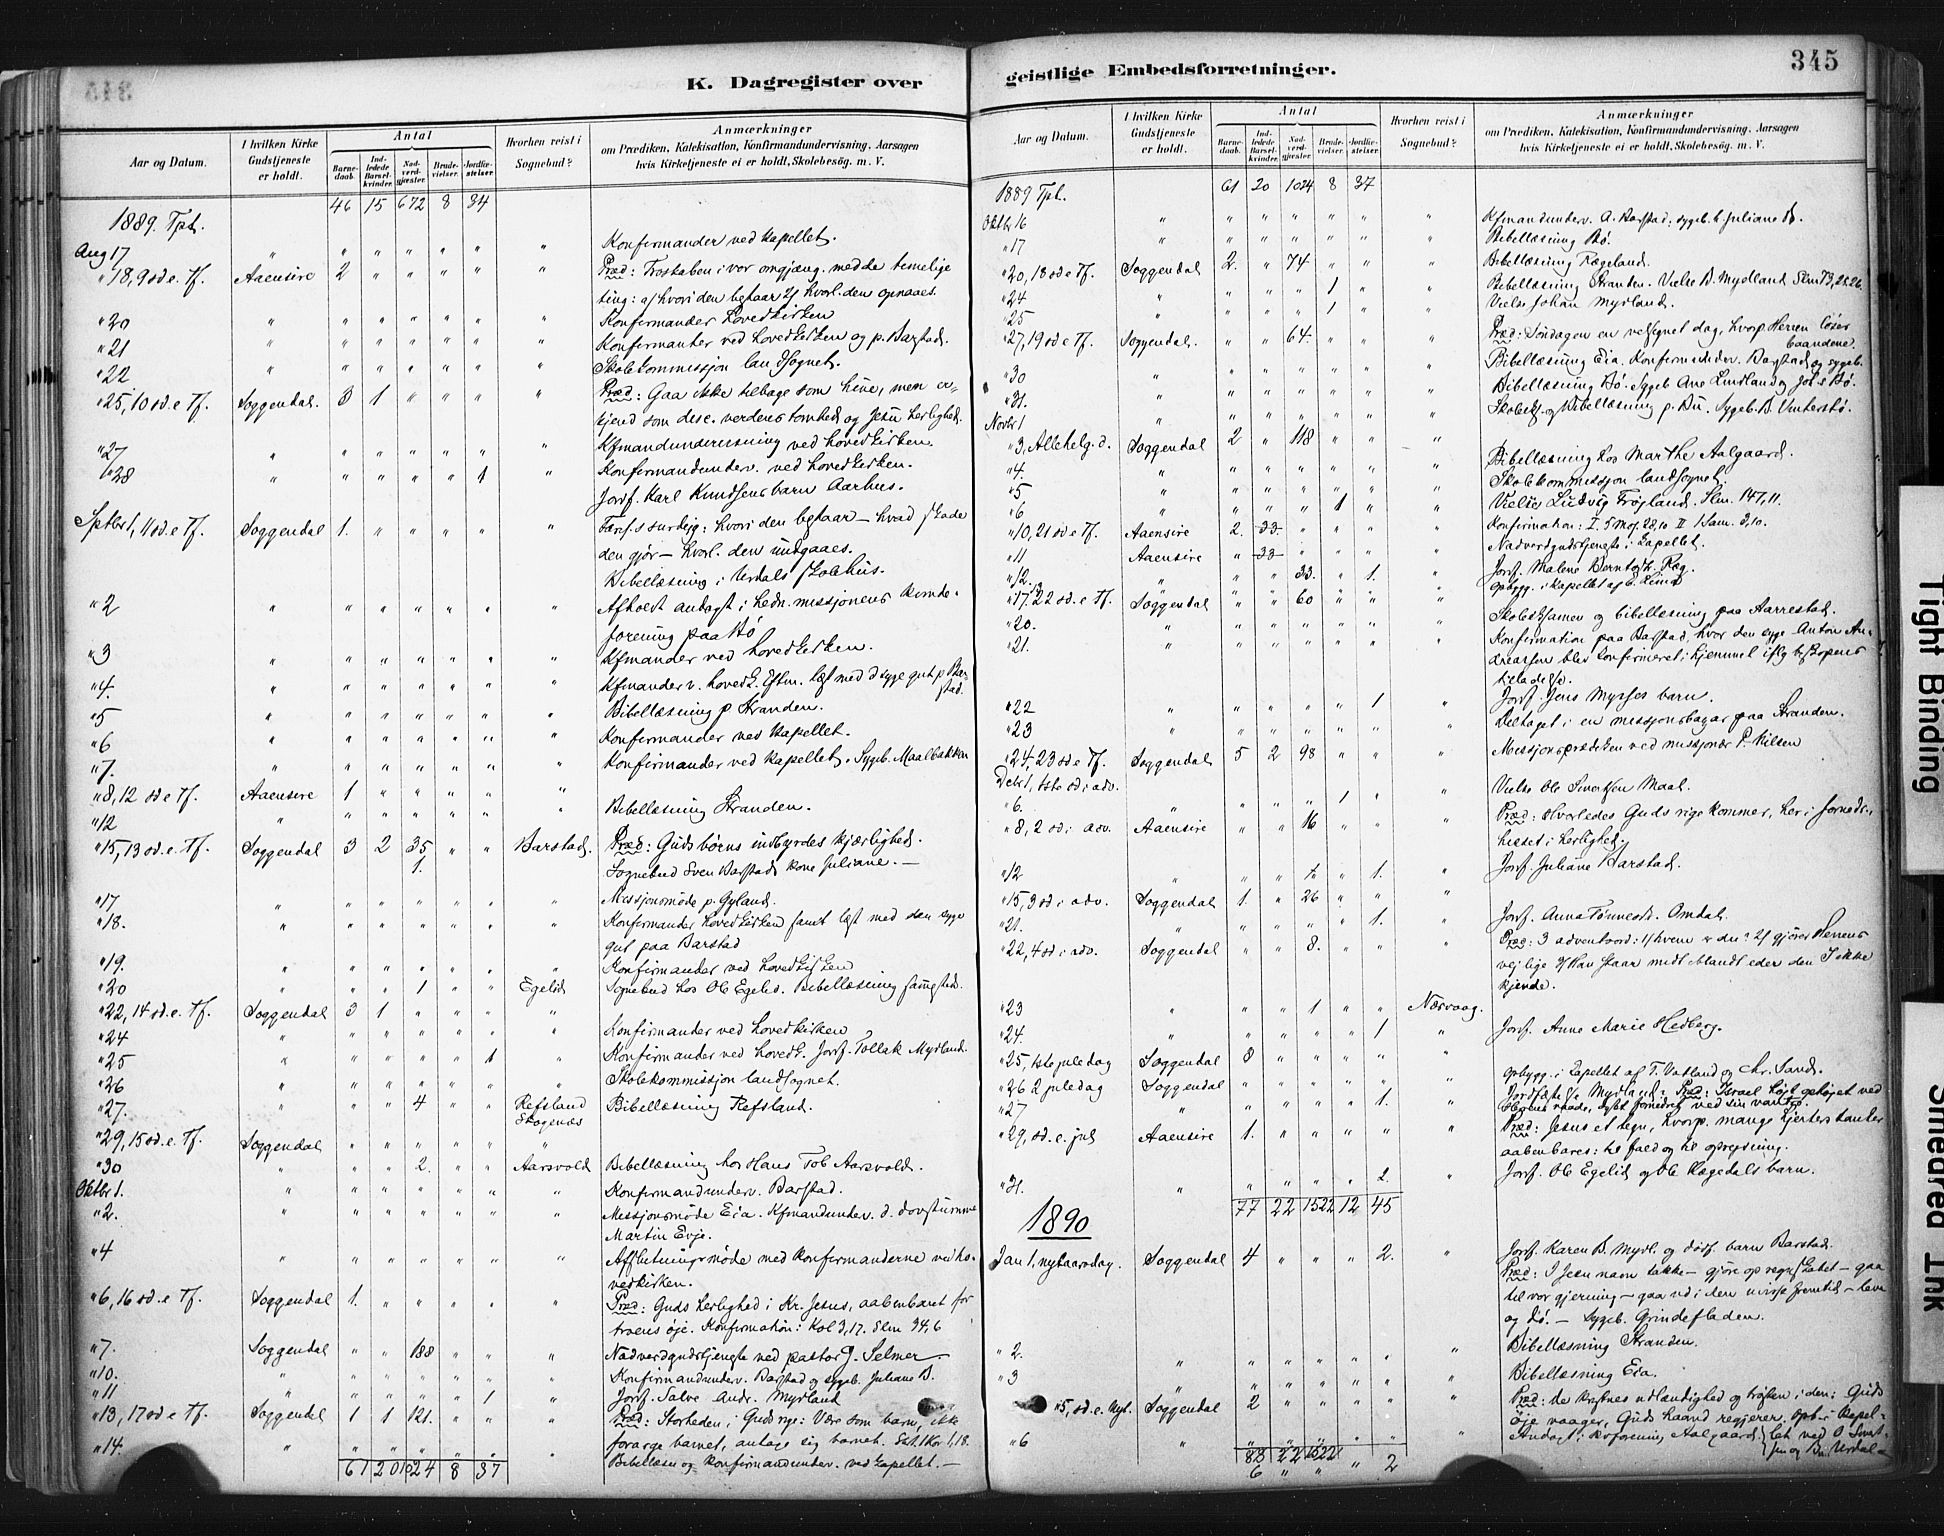 345
K. Dagregister over geistlige Embedsforretninger.
Aar og Datum.
I hvilken Kirke Gudstjeneste er holdt.
Antal
Barnedaab.
Indledede Barselkvinder.
Nadverdgjæster.
Brudevielser.
Jordfæstelser.
Hvorhen reist i Sognebud?
Anmærkninger
om Prædiken, Katekisation, Konfirmandundervisning, Aarsagen
hvis Kirketjeneste ei er holdt, Skolebesög. m. V.
1889. Tpt. 46 15 672 8 34
Aug 17 " " " " " " " Konfirmander ved kapellet.
" 18, 9 sd e. Tf. Aaensire 2 " " " " " Præd: Troskaben i vor omgjæng. med de timelige
ting: a/ hvori den bestaar 2/ hvorl. den opnaaes.
" 20 " " " " " " " Konfirmander Hovedkirken
" 21 " " " " " " " Konfirmanter ved hovedkirken og p. Barstad.
" 22 " " " " " " " Skolekommissjon landsognet.
" 25, 10 sd. e Tf. Soggendal. 3 1 " " " " Præd: Gaa ikke tilbage som hine, men er-
kjend som disc. verdens tomhed og Jesu herlighed.
" 27 " " " " " " " Kfmandundervisning ved hovedkirken.
" 28 " " " " " 1 " Konfirmandunderv. ved hovedkirken.
Jordf. Karl Knudsens barn Aarhus.
Septbr 1, 11 sd. e Tf. Soggendal 1. " " " " " Færis. surdejg: hvori den bestaar — hvad skade
den gjør — hvorl. den undgaaes.
Bibellæsning i Urdals skolehus.
" 2 " " " " " " " Afholdt andagt i hedn. missjonens kvinde-
forening paa Bø
" 3 " " " " " " " Kfmander ved hovedkirken.
" 4. " " " " " " " Kfmander v. hovedk. Eftm. læst med d syge gut p Bar-
stad.
" 5 " " " " " " " Bibellæsning p Stranden.
" 6 " " " " " " " Konfirmander ved kapellet.
" 7. " " " " " " " Konfirmander ved kapellet. Sygeb. Maalbakken
" 8, 12 sd e Tf. Aaensire 1 " " " " "
" 12 " " " " " " " Bibellæsning Stranden.
" 15, 13 sd. e Tf. Soggendal 3 2 35 " " Barstad. Præd: Guds børns indbyrdes kjærlighed.
1. Sognebud Sven Barstads kone Juliane. —
" 17 " " " " " " " Missjonsmøde p. Gyland.
" 18. " " " " " " " Konfirmander hovedkirken samt læst med den syge
gut paa Barstad
" 19. " " " " " " " Konfirmander ved hovedkirken
" 20 " " " 1 " " Egelid Sognebud hos Ole Egelid. Bibellæsning samsteds.
" 22, 14 sd. e. Tf. Soggendal 3 1 " " " "
" 24 " " " " " " " Konfirmander ved hovedkirken
" 25 " " " " " 1 " Konfirmander ved hovedk. Jordf. Tollak Mydland.
" 26 " " " " " " " Skolekommissjon landsognet.
" 27. " " " 4 " " Refsland Bibellæsning Refsland.
Skogenæs
" 29, 15 sd. e. Tf. Soggendal " " " " " "
" 30 " " " 2. " " Aarsvold Bibellæsning hos Hans Tob Aarsvold.
Oktbr 1. " " " " " " " Konfirmandunderv. Barstad.
" 2. " " " " " " " Missjonsmøde Eia. Kfmandunderv. d. døvstumme
Martin Evje.
" 4 " " " " " " " møde med konfirmanderne ved ho-
vedkirken.
" 6, 16 sd e. Tf. Soggendal 1. " " " " " Præd: Guds herlighed i Kr. Jesus, aabenbaret for
troens øje. Konfirmation: Kol 3,17. Slm 34,6
" 7. Soggendal " " 188 " " " Nadverdgudstjenste ved pastor J. Selmer —
" 10. " " " " " " " Konfirmandunderv. Barstad og sygeb. Juliane B.
" 11 " " " " " 1 " Jordf. Salve Andr. Mydland
" 13, 17 sd e Tf. Soggendal 1 1 121. " " " Præd: Storheden i Guds rige: Være som barn, ikke
forarge barnet, antage sig barnet. Sst. 1 Kor 1,18.
" 14. " " " " " " " Bibellæsn og konfirmandunderv. ved kapellet. —
61 20 1024 8 37
1889 Tpt. 61 20 1024 8 37
Oktbr 16 " " " " " " " Kfmandunderv. A. Barstad: sygeb. t. Juliane B.
" 17 " " " " " " " Bibellæsning Bø.
" 20, 18 sd e Tf. Soggendal 2. " 74 " " " Bibellæsning Fægeland.
" 24 " " " " 1 " " Bibellæsning Stranden. Vielse B. Mydland Slm 73,25.26.
" 25 " " " " 1 " " Vielse Johan Mydland.
" 27, 19 sd e Tf. Soggendal. " " 64. " " " Præd: Søndagen en velsignet dag, hvorp Herren løser
baandene.
" 30 " " " " " " " Bibellæsning Eia. Konfirmandunderv. Barstad og sygeb.
" 31. " " " " " " " Bibellæsning Bø. Sygeb. Ane Lindland og Jols Bø.
Novbr 1 " " " " " " " Skolebs. og Bibellæsning p. Bu. Sygeb. B. Understø.
" 3, Allehelg. d. Soggendal 2 " 118 " " "
" 4. " " " " " " " Bibellæsning hos Marthe Aalgaard.
" 5 " " " " " " " Skolekommissjon landsognet.
" 6 " " " " 1 " " Vielse Ludvig Frøjland. Slm. 147,11.
" 10, 21 sd e Tf. Aaensire 2. 33. " " " " Konfirmation: I. 5 Mos. 28,10 II 1 Sam. 3,10.
" 11 Aaensire " 33 " " " " Nadverdgudstjenste i kapellet.
" 12. " " " 33. " 1. " Jordf. Malene Berntsdt. Ræg.
" 17, 22 sd. e Tf. Soggendal " " 60 " " " opbygg. i kapellet af E. Lund
" 20. " " " " " " " Skoleeksamen og bibellæsning paa Aarrestad.
" 21. " " " " " " " Konfirmation paa Barstad, hvor den syge Anton An-
dreassen blev konfirmeret i hjemmet iflg biskopens
tilladelse.
" 22 " " " " " 1 " Jordf. Jens Mysses barn.
" 23 " " " " " " " Deltaget i en missjonsbazar paa Stranden.
" 24, 23 sd e Tf. Soggendal 5 2 98 " " " Missjonsprædiken ved missionær P. Nilsen
Decbr 1, 1ste sd i adv.
" 6. " " " " 1 " " Vielse Ole Maal.
" 8, 2 sd i adv. Aaensire " " 16 " " " Præd: Hvorledes Guds rige kommer, her i fornedr.,
hisset i herlighed.
" 12 " " " 1. " 1. " Jordf. Juliane Barstad.
" 15, 3 sd i adv. Soggendal 1. " 26 " " "
" 21. " " " " " 1. " Jordf. Anna Tønnesd. Omdal.
" 22, 4 sd i adv. Soggendal " " 8. " " " Præd: 3 adventsord: 1/ hvem er du? 2/ gjører Herrens
vej lige 3/ Han staar midt iblandt eder den I ikke
kjende.
" 23 " " " 1 " " Næsvaag.
" 24. " " " " " 1 " Jordf. Anne Marie Hedberg.
" 25, 1ste juledag Soggendal 8 " " " " "
" 26 2 juledag Soggendal " " " " " " opbygg. i kapellet af T. Vatland og Chr. Sand.
" 27 " " " " " 1. " Jordfæstelse Mydland: Præd: Israel højt ophøjet ved
Herrens naade, dybt fornedret ved sin vantro.
" 29, sd. e. jul Aaensire 1. " " " " " Præd: Jesus et tegn, hvorp. mange hjerters tanker
aabenbares: til fald og til oprejsning.
" 31. " " " " " 2. " Jordf. Ole Egelid og Ole Hægedals barn.
77 22 1522 12 45
1890
Jan 1, nytaarsdag. Soggendal 4 " " " 2. " Jordf. Karen B. Mydl. og dødf. barn Barstad.
Præd: I Jesu navn takke — gjøre op regnskabet — gaa
til vor gjerning — gaa ud i den uvisse fremtid — leve
og dø. — Sygeb. Grindefladen.
" 2. " " " " " " " Bibellæsning Stranden.
" 3 " " " " " " " Bibellæsning Eia.
" 5, sd. e. Nyt. Soggendal 2 " " " " " Præd: de kristnes udlændighed og trøsten i den: Guds
øje vaager, Guds haand regjerer. Opb. i kapel-
" 6 " " " " " " " Andagt i kvforening Aalgaard. let ved O Smat-
sen og Bu. Urdal —
83 22 1522
6 " " " 2
Tight Binding
Smeared Ink